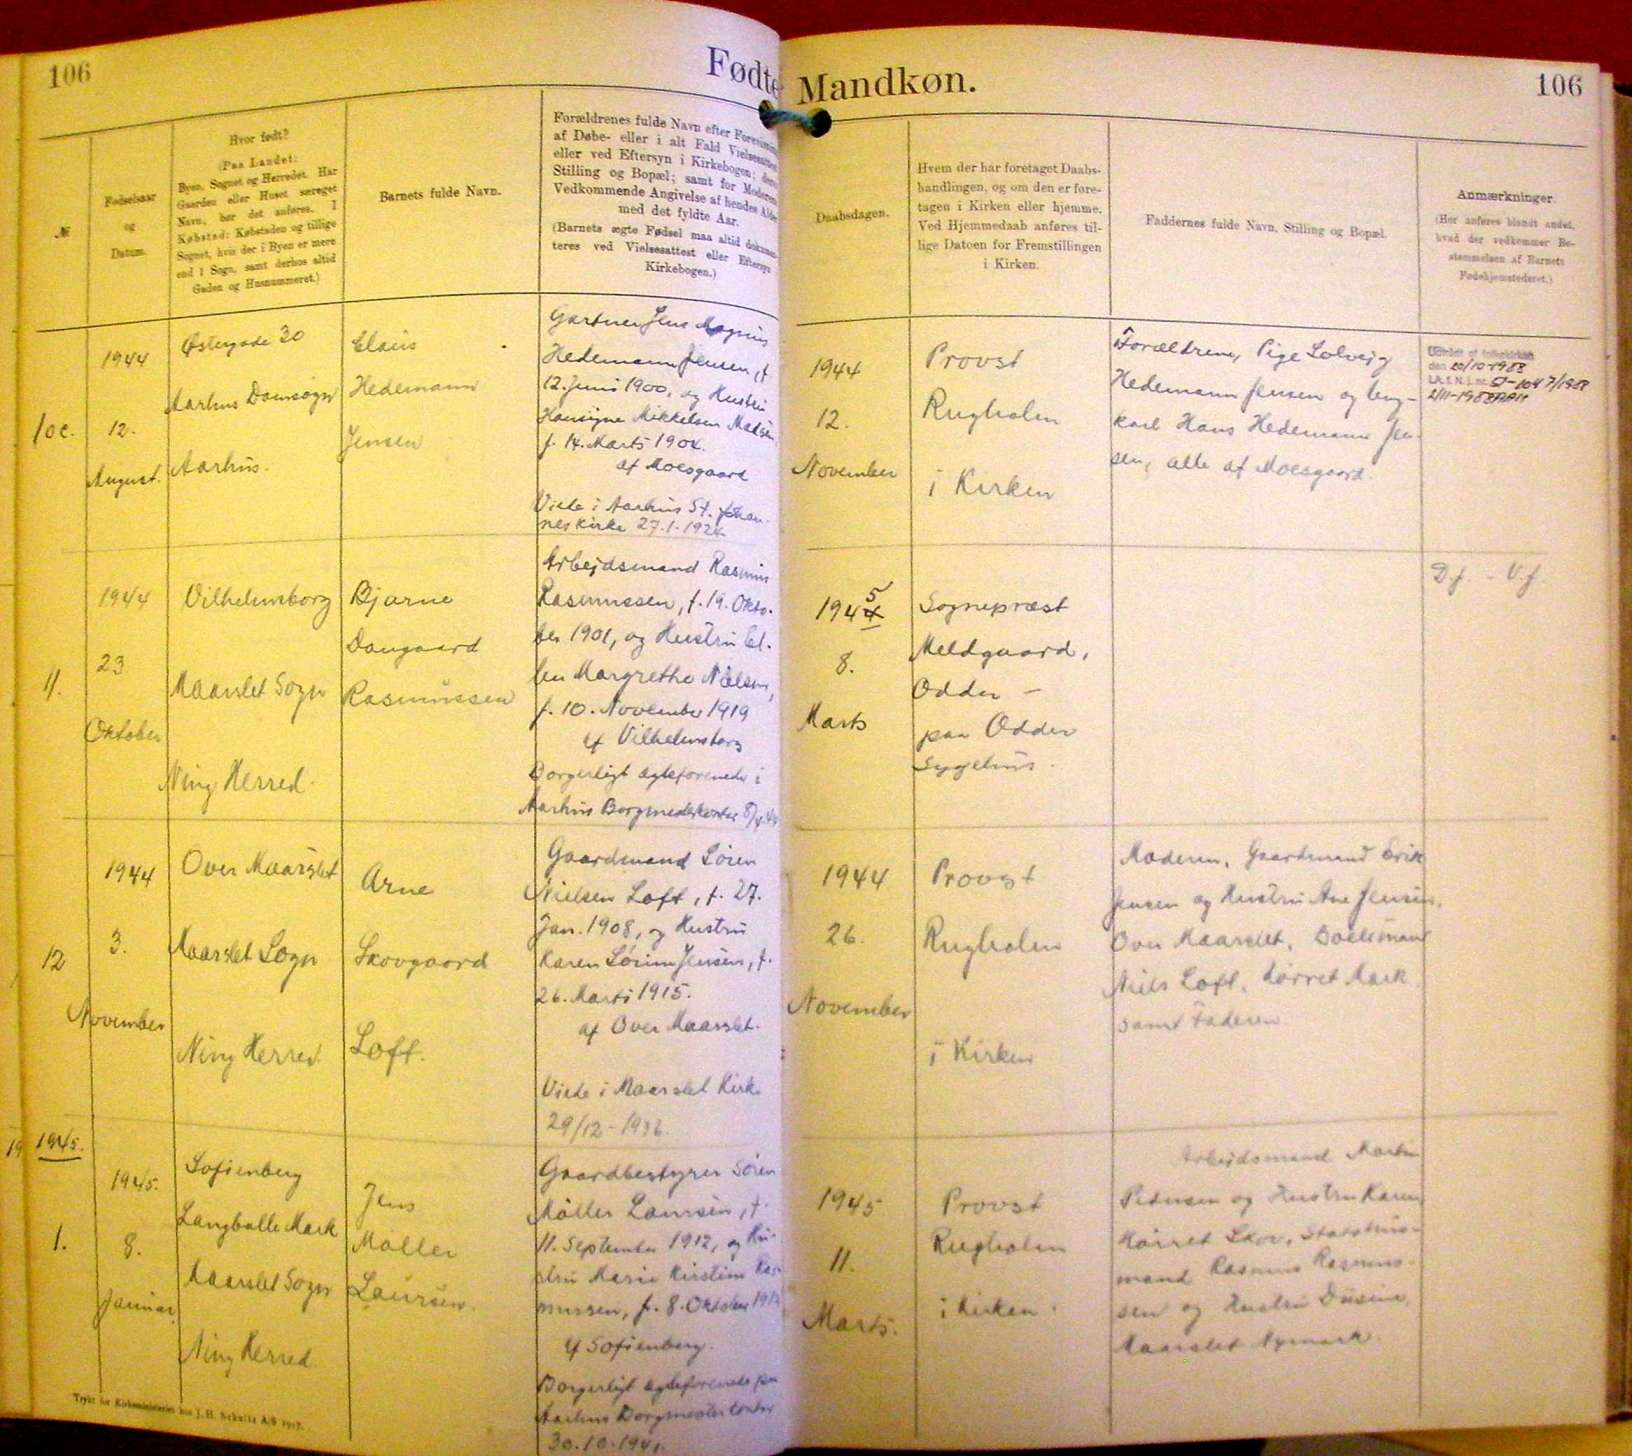 106
Fødte
Mandkøn.
106
№
Fødselsaar
og
Datum.
Hvor født?
(Paa Landet:
Byen, Sognet og Herredet. Har
Gaarden eller Huset særeget
Navn, bør det anføres. I
Købstad: Købstaden og tillige
Sognet, hvis der i Byen er mere
end 1 Sogn, samt derhos altid
Gaden og Husnummeret.)
Barnets fulde Navn.
Forældrenes fulde Navn efter
af Døbe- eller i alt Fald
eller ved Eftersyn i Kirkebogen;
Stilling og Bopæl; samt for
Vedkommende Angivelse af hendes
med det fyldte Aar.
(Barnets ægte Fødsel maa altid dokumen-
teres ved Vielsesattest eller Eftersyn
Kirkebogen.)
Daabsdagen.
Hvem der har foretaget Daabs-
handlingen, og om den er fore-
tagen i Kirken eller hjemme.
Ved Hjemmedaab anføres til-
lige Datoen for Fremstillingen
i Kirken.
Faddernes fulde Navn, Stilling og Bopæl.
Anmærkninger.
(Her anføres blandt andet,
hvad der vedkommer Be-
stemmelsen af Barnets
Fødehjemstedsret.)
10c.
1944
12.
August.
Østergade 30
Aarhus Domsogn
Aarhus.
Claus
Hedemann
Jensen
Gartner Jens Magnus
Hedemann Jensen, f.
12. Juni 1900, og Hustru
Hansigne Mikkelsen Madsen
f. 14. Marts 1904.
af Moesgaard
Viede i Aarhus St. Johan-
nes Kirke 27.1.1924
1944
12.
November
Provst
Rugholm
i Kirken
Forældrene, Pige Solvejg
Hedemann Jensen og Ung-
karl Hans Hedemann Jen-
sen, alle af Moesgaard.
Udtrådt af folkekirken
den 20/10-1988
11.
1944
23
Oktober
Vilhelmsborg
Maarslet Sogn
Ning Herred.
Bjarne
Daugaard
Rasmussen
Arbejdsmand Rasmus
Rasmussen, f. 19. Okto-
ber 1901, og Hustru El-
len Margrethe Nielsen,
f. 10. November 1919
af Vilhelmsborg
Borgerligt ægteforenede i
Aarhus Borgmesterkontor
5
1944
8.
Marts
Sognepræst
Meldgaard,
Odder –
paa Odder
Sygehus.
D.f. – V.f.
12
1944
3.
November
Over Maarslet
Maarslet Sogn
Ning Herred.
Arne
Skovgaard
Loft.
Gaardmand Søren
Nielsen Loft, f. 27.
Jan. 1908, og Hustru
Karen Sørine Jensen, f.
26. Marts 1915.
af Over Maarslet.
Viede i Maarslet Kirke
29/12-1936.
1944
26.
November
Provst
Rugholm
i Kirken
Moderen, Gaardmand Erik
Jensen og Hustru Ane Jensen,
Over Maarslet, Boelsmand
Niels Loft, Hørret Mark
samt Faderen
1945.
1.
1945.
8.
Januar.
Sofienberg
Langballe Mark
Maarslet Sogn
Ning Herred
Jens
Møller
Laursen.
Gaardbestyrer Søren
Møller Laursen, f.
11. September 1912, og Hu-
stru Marie Kirstine Ras-
mussen, f. 8. Oktober
af Sofienberg.
Borgerligt ægteforenede paa
Aarhus Borgmesterkontor
30.10.1941.
1945
11.
Marts.
Provst
Rugholm
i Kirken.
Arbejdsmand Martin
Petersen og Hustru Karen
Hørret Skov, Statshus-
mand Rasmus Rasmus-
sen og Hustru
Maarslet Nymark.
Trykt for Kirkeministeriet hos J. H. Schultz A/S 1917.